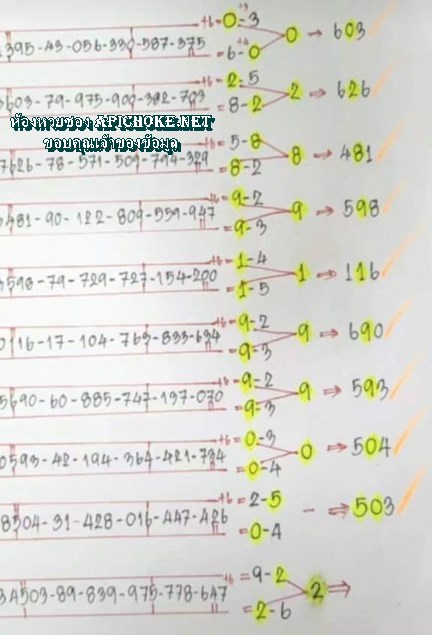 +6=0-3
1395-43-056-330-587-375 0 → 603
=6-0
=2-5
3603-79-975-900-392-703 2 ⇒ 626
8-2
ห้องหวยซอง APICHOKE.NET
ขอบคุณเจ้าของข้อมูล
=5-8
7626-78-571-509-794-329 8 ⇒ 481
=8-2
=9-2
5481-90-122-809-559-947 9 → 598
=9-3
=1-4
3598-79-729-727-154-200 1 ⇒ 116
=1-5
=9-2
0116-17-104-763-833-634 9 → 690
=9-3
=9-2
5690-60-885-747-197-070 9 ⇒ 593
9-3
+6=0-3
0593-42-194-364-421-734 0 ⇒ 504
=0-4
+6=2-5
8504-31-428-016-447-426 - ⇒ 503
=0-4
+6=9-2
34503-89-839-975-778-647 2 ⇒
=2-6